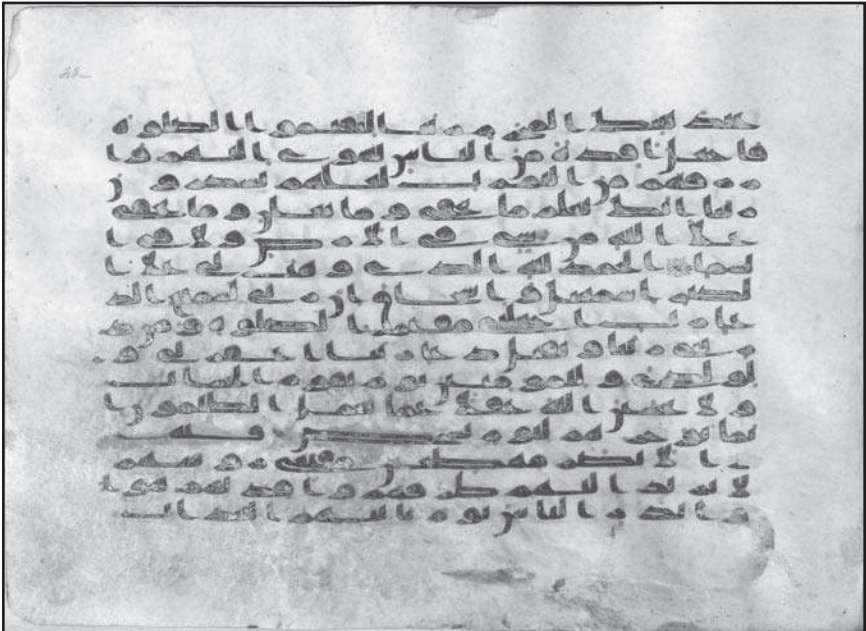 عند بيتك المحرم ربنا ليقيموا الصلوة
فاجعل افدة من الناس تهوى اليهم وا
رزقهم من الثمرت لعلهم يشكرون
ربنا انك تعلم ما نخفى وما نعلن وما يخفى
على الله من شى فى الارض ولا فى ا
لسما الحمد لله الذى وهب لى على ا
لكبر اسمعيل واسحق ان ربى لسميع الد
عا رب اجعلنى مقيم الصلوة ومن ذ
ريتى ربنا وتقبل دعا ربنا اغفر لى و
لولدى وللمومنين يوم يقوم الحساب
ولا تحسبن الله غفلا عما يعمل الظلمون ا
نما يوخرهم ليوم تشخص فيه
الابصر مهطعين مقنعى روسهم
لا يرتد اليهم طرفهم وافدتهم هوا
وانذر الناس يوم ياتيهم العذاب